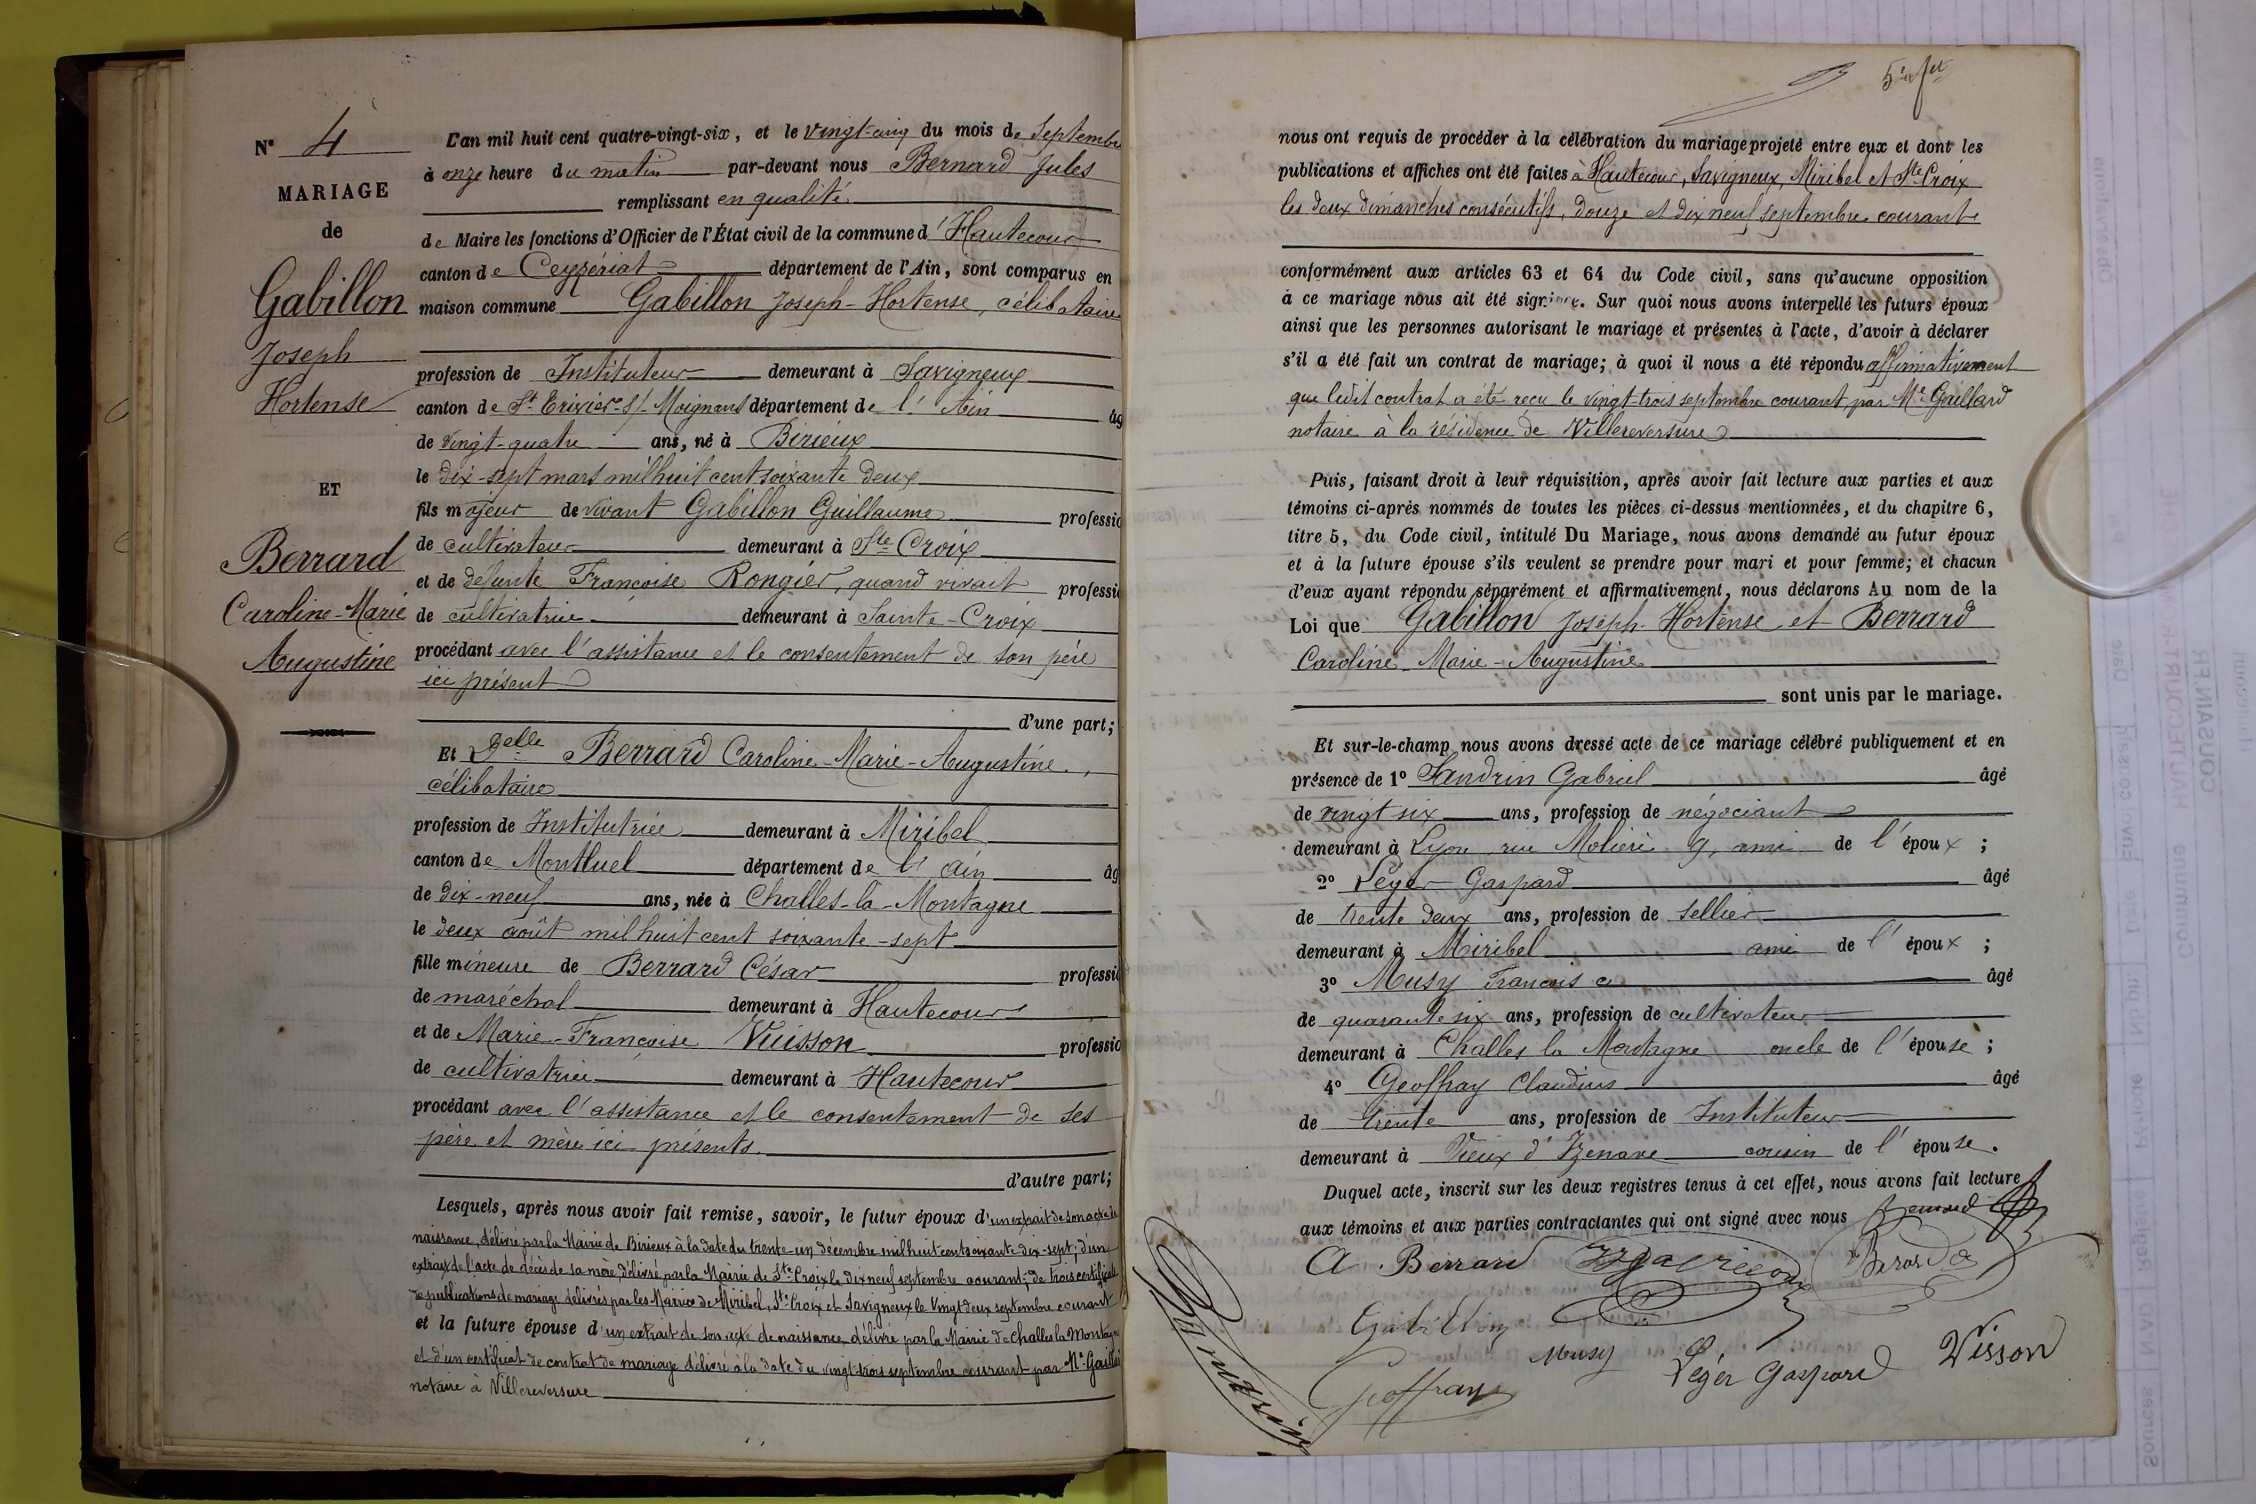 N° 4
MARIAGE
de
Gabillon
Joseph
Hortense
ET
Berrard
Caroline-Marie
Augustine
L'an mil huit cent quatre-vingt-six, et le vingt-cinq du mois de Septembre
à onze heure du matin par-devant nous Bernard Jules
remplissant en qualité
de Maire les fonctions d'Officier de l'État civil de la commune d'Hautecour
canton de Ceyzériat département de l'Ain, sont comparus en
maison commune Gabillon Joseph-Hortense, célibataire
profession de Instituteur demeurant à Savigneux
canton de St Trivier-s/-Moignans département de l'Ain âg
de vingt-quatre ans, né à Birieux
le dix-sept mars mil huit cent soixante deux
fils majeur de vivant Gabillon Guillaume professio
de cultivateur demeurant à Ste Croix
et de défunte Françoise Rongier, quand vivait professi
de cultivatrice demeurant à Sainte-Croix
procédant avec l'assistance et le consentement de son père
ici présent
d'une part;
Et Delle Berrard Caroline-Marie-Augustine,
célibataire
profession de Institutrice demeurant à Miribel
canton de Montluel département de l'Ain âg
de dix-neuf ans, née à Challes-la-Montagne
le deux août mil huit cent soixante-sept
fille mineure de Berrard César professi
de maréchal demeurant à Hautecour
et de Marie-Françoise Vuisson professio
de cultivatrice demeurant à Hautecour
procédant avec l'assistance et le consentement de ses
père et mère ici présents.
d'autre part;
Lesquels, après nous avoir fait remise, savoir, le futur époux d'un extrait de son acte de
naissance, délivré par la Mairie de Birieux à la date du trente-un décembre mil huit cent soixante dix-sept; d'un
extrait de l'acte de décès de sa mère, délivré par la Mairie de Ste Croix le dix neuf septembre courant; de trois certificats
de publications de mariage délivrés par les Mairies de Miribel, Ste Croix et Savigneux le vingt deux septembre courant
et la future épouse d'un extrait de son acte de naissance délivré par la Mairie de Challes la Montagne
et d'un certificat de contrat de mariage délivré à la date du vingt-trois septembre courant par Me Gaillard
notaire à Villereversure
nous ont requis de procéder à la célébration du mariage projeté entre eux et dont les
publications et affiches ont été faites à Hautecour, Savigneux, Miribel et Ste Croix
les deux dimanches consécutifs, douze et dix neuf septembre courant
conformément aux articles 63 et 64 du Code civil, sans qu'aucune opposition
à ce mariage nous ait été signifiée. Sur quoi nous avons interpellé les futurs époux
ainsi que les personnes autorisant le mariage et présentes à l'acte, d'avoir à déclarer
s'il a été fait un contrat de mariage; à quoi il nous a été répondu affirmativement
que ledit contrat a été reçu le vingt-trois septembre courant, par Me Gaillard
notaire à la résidence de Villereversure
Puis, faisant droit à leur réquisition, après avoir fait lecture aux parties et aux
témoins ci-après nommés de toutes les pièces ci-dessus mentionnées, et du chapitre 6,
titre 5, du Code civil, intitulé Du Mariage, nous avons demandé au futur époux
et à la future épouse s'ils veulent se prendre pour mari et pour femme; et chacun
d'eux ayant répondu séparément et affirmativement, nous déclarons Au nom de la
Loi que Gabillon Joseph-Hortense et Berrard
Caroline-Marie-Augustine
sont unis par le mariage.
Et sur-le-champ nous avons dressé acte de ce mariage célébré publiquement et en
présence de 1° Sandrin Gabriel âgé
de vingt six ans, profession de négociant
demeurant à Lyon rue Molière 9, ami de l'époux;
2° Léger Gaspard âgé
de trente deux ans, profession de sellier
demeurant à Miribel ami de l'époux;
3° Musy François âgé
de quarante six ans, profession de cultivateur
demeurant à Challes la Montagne oncle de l'épouse;
4° Geoffray Claudius âgé
de trente ans, profession de Instituteur
demeurant à Vieux d'Izenave cousin de l'épouse.
Duquel acte, inscrit sur les deux registres tenus à cet effet, nous avons fait lecture
aux témoins et aux parties contractantes qui ont signé avec nous
A. Berrard
Gabillon
Musy
Léger Gaspard
Visson
Geoffray